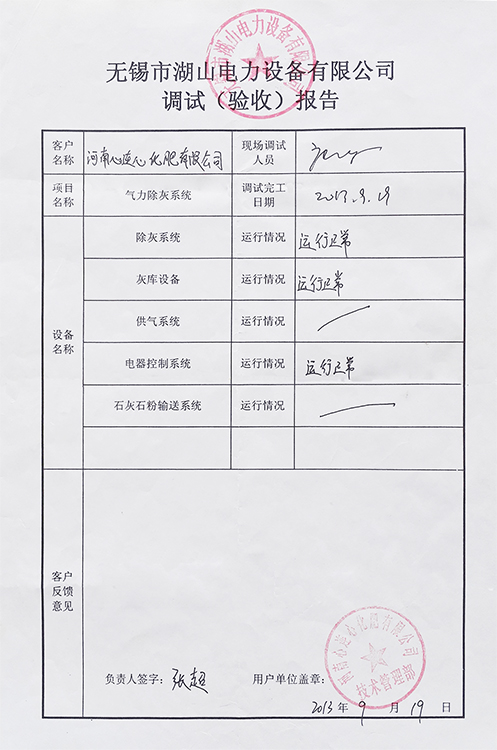 无锡市湖山电力设备有限公司
调试（验收）报告
客户名称 河南心连心化肥有限公司 现场调试人员
项目名称 气力除灰系统 调试完工日期 2013.9.19
设备名称
除灰系统 运行情况 运行正常
灰库设备 运行情况 运行正常
供气系统 运行情况
电器控制系统 运行情况 运行正常
石灰石粉输送系统 运行情况
客户反馈意见
负责人签字： 张超 用户单位盖章：
技术管理部
2013 年 9 月 19 日